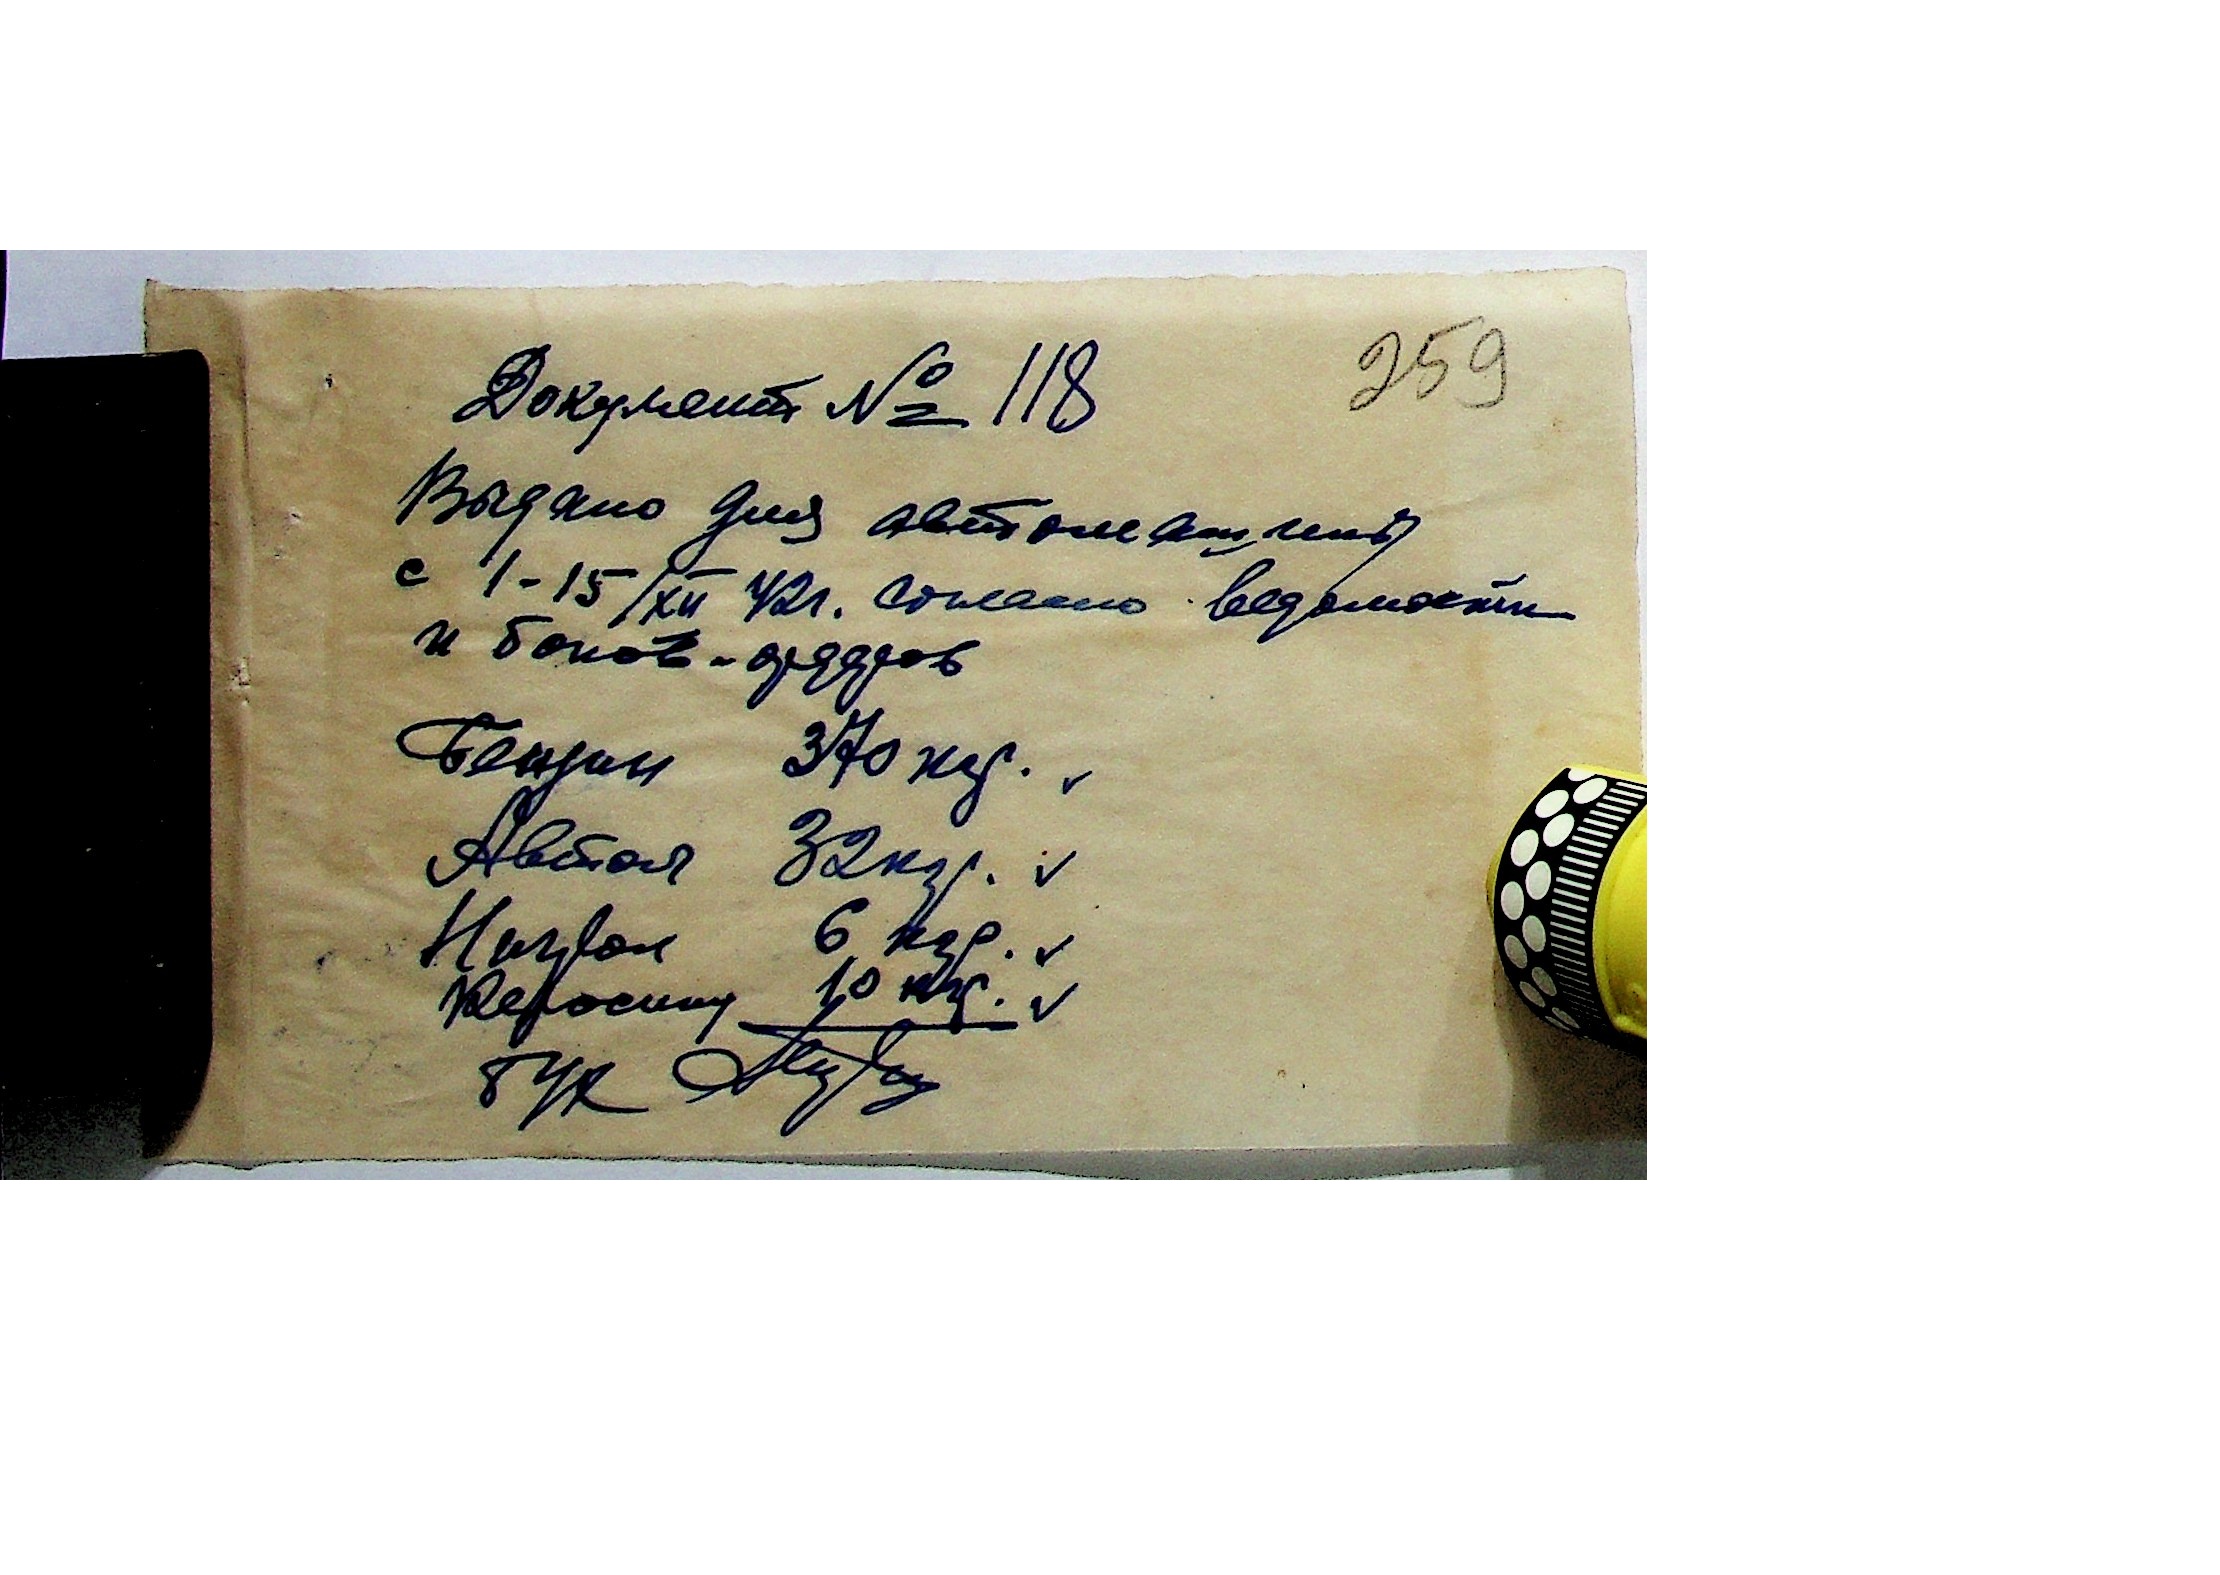 259
Документ № 118
Выдано для автомашины
с 1-15/XII 42г. согласно ведомости
и бонов-ордеров
Бензин 370 кгр. ✓
Автол 32 кгр. ✓
Нигрол 6 кгр. ✓
Керосину 10 кгр. ✓
бух